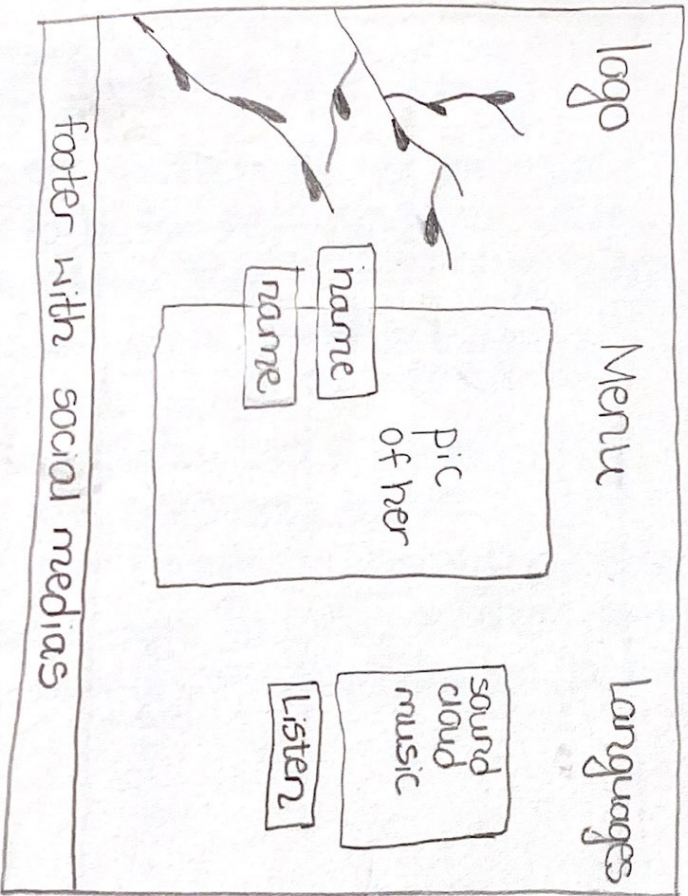 logo
Menu
Languages
pic
of her
name
name
sound
cloud
music
Listen
footer with social medias